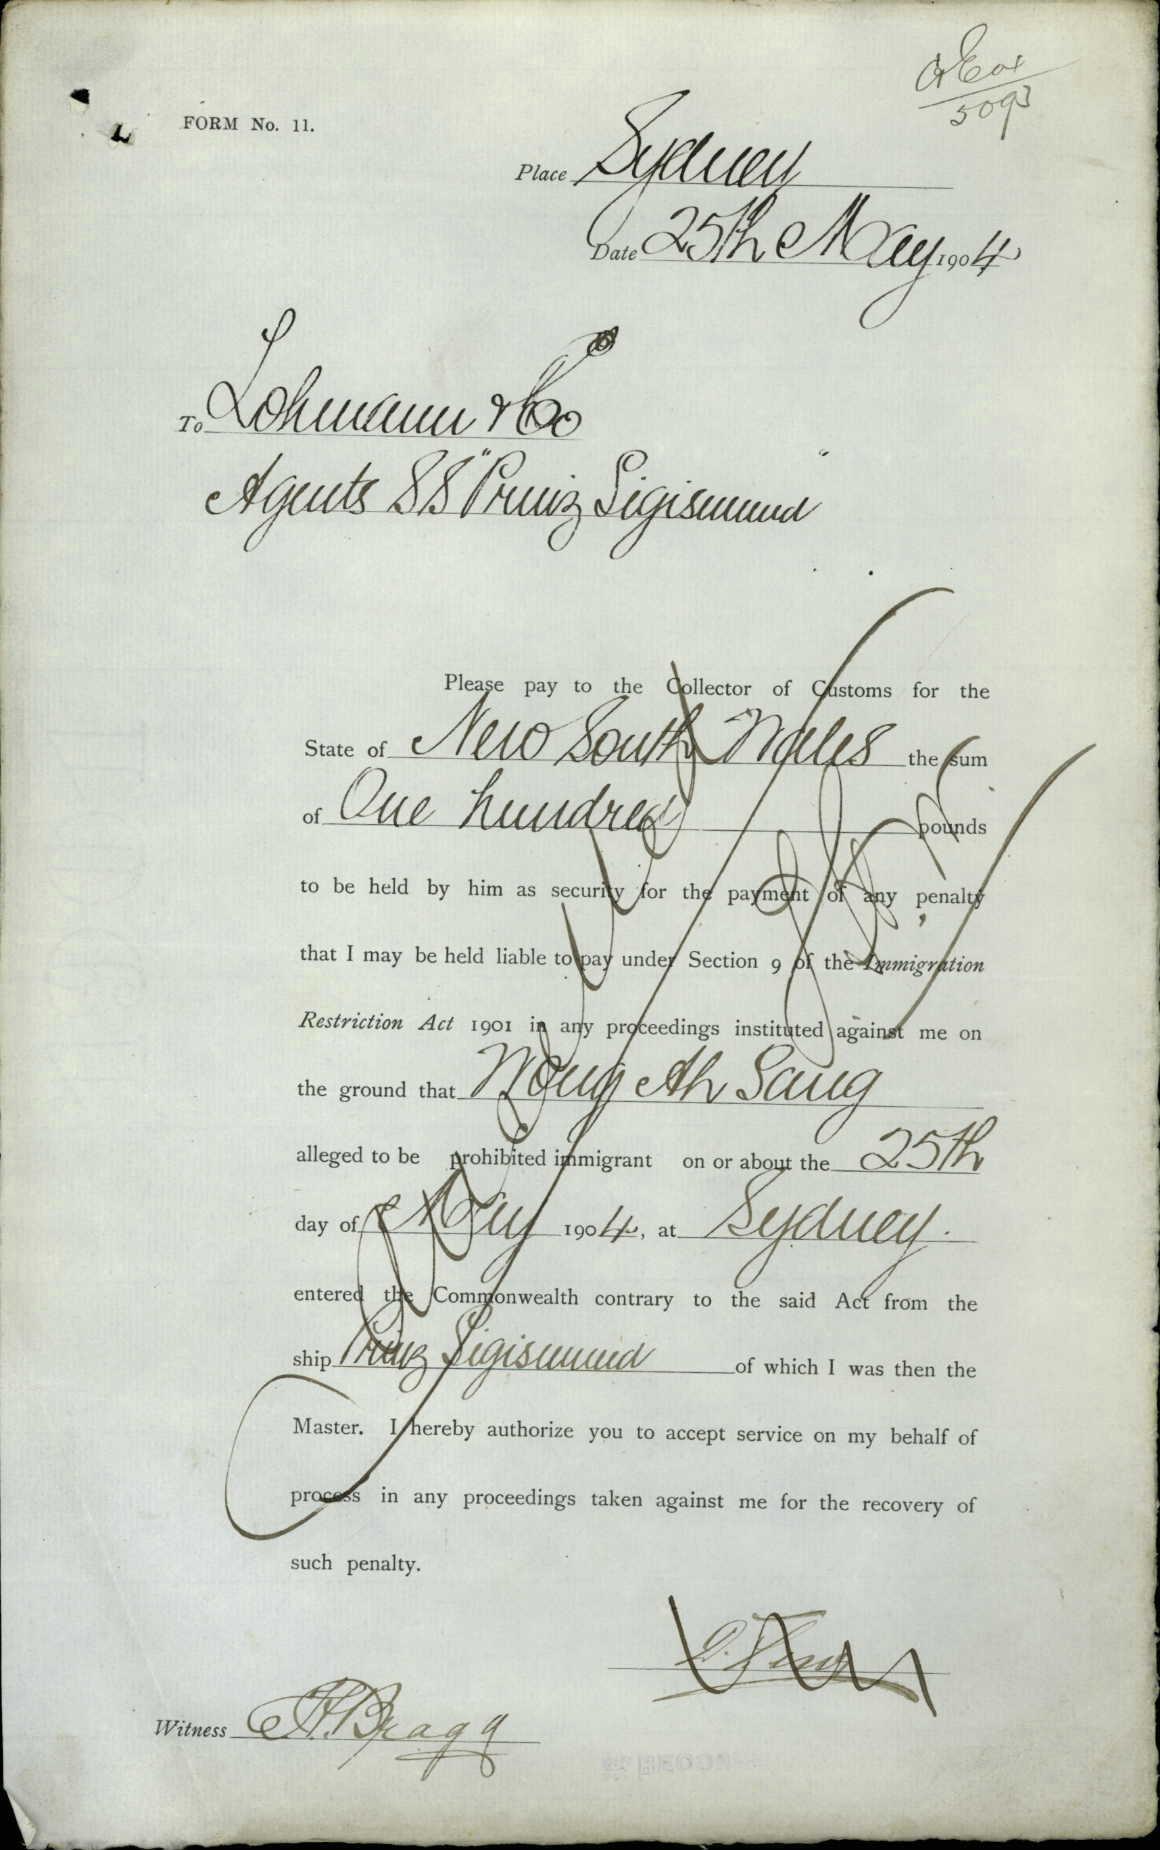 5093
FORM No. 11.
Place Sydney
Date 25th May 1904
To Lohmann & Co
Agents SS "Prinz Sigismund"
Please pay to the Collector of Customs for the
State of New South Wales the sum
of One hundred pounds
to be held by him as security for the payment of any penalty
that I may be held liable to pay under Section 9 of the Immigration
Restriction Act 1901 in any proceedings instituted against me on
the ground that Wong Ah Sang
alleged to be prohibited immigrant on or about the 25th
day of May 1904, at Sydney.
entered the Commonwealth contrary to the said Act from the
ship Prinz Sigismund of which I was then the
Master. I hereby authorize you to accept service on my behalf of
process in any proceedings taken against me for the recovery of
such penalty.
Witness H. Bragg